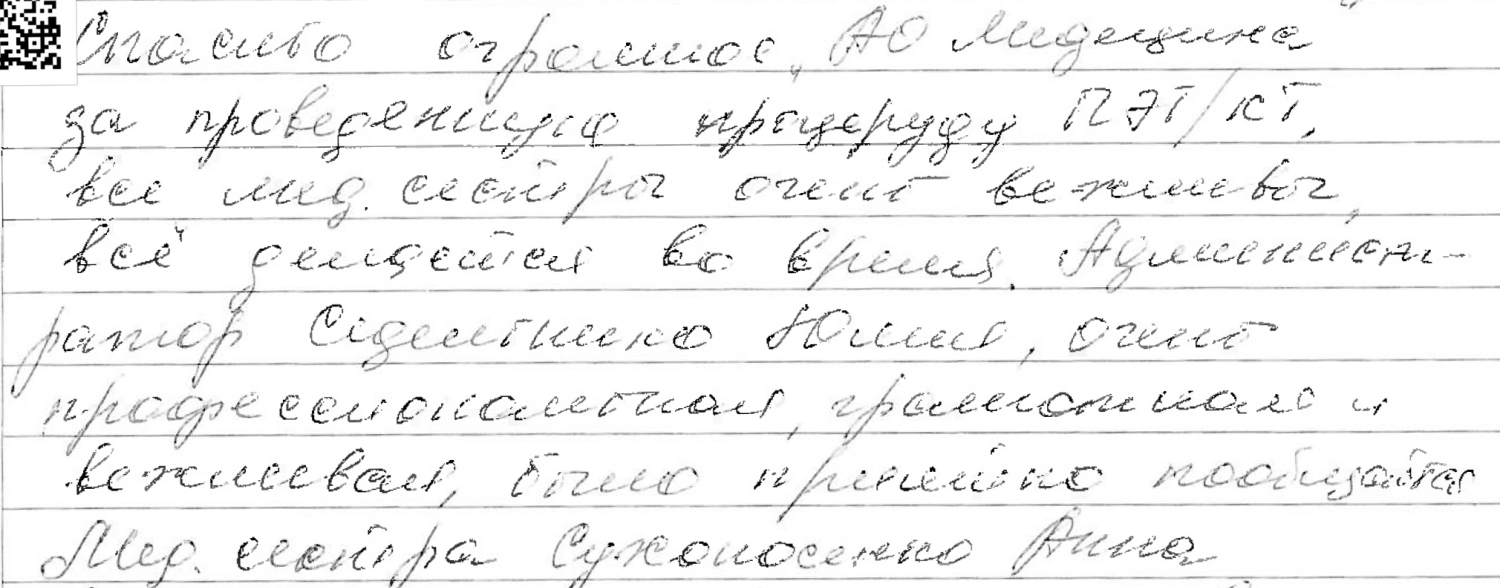 Спасибо огромное, АО Медецина
за проведенную процеруду ПЭТ/КТ,
все мед. сестры очень вежливы,
всё делается во время. Админист-
ратор Юлия, очень
профессиональная, грамотная и
вежливая, было приятно пообщаться
Мед. сестра Сухоносенко Анна